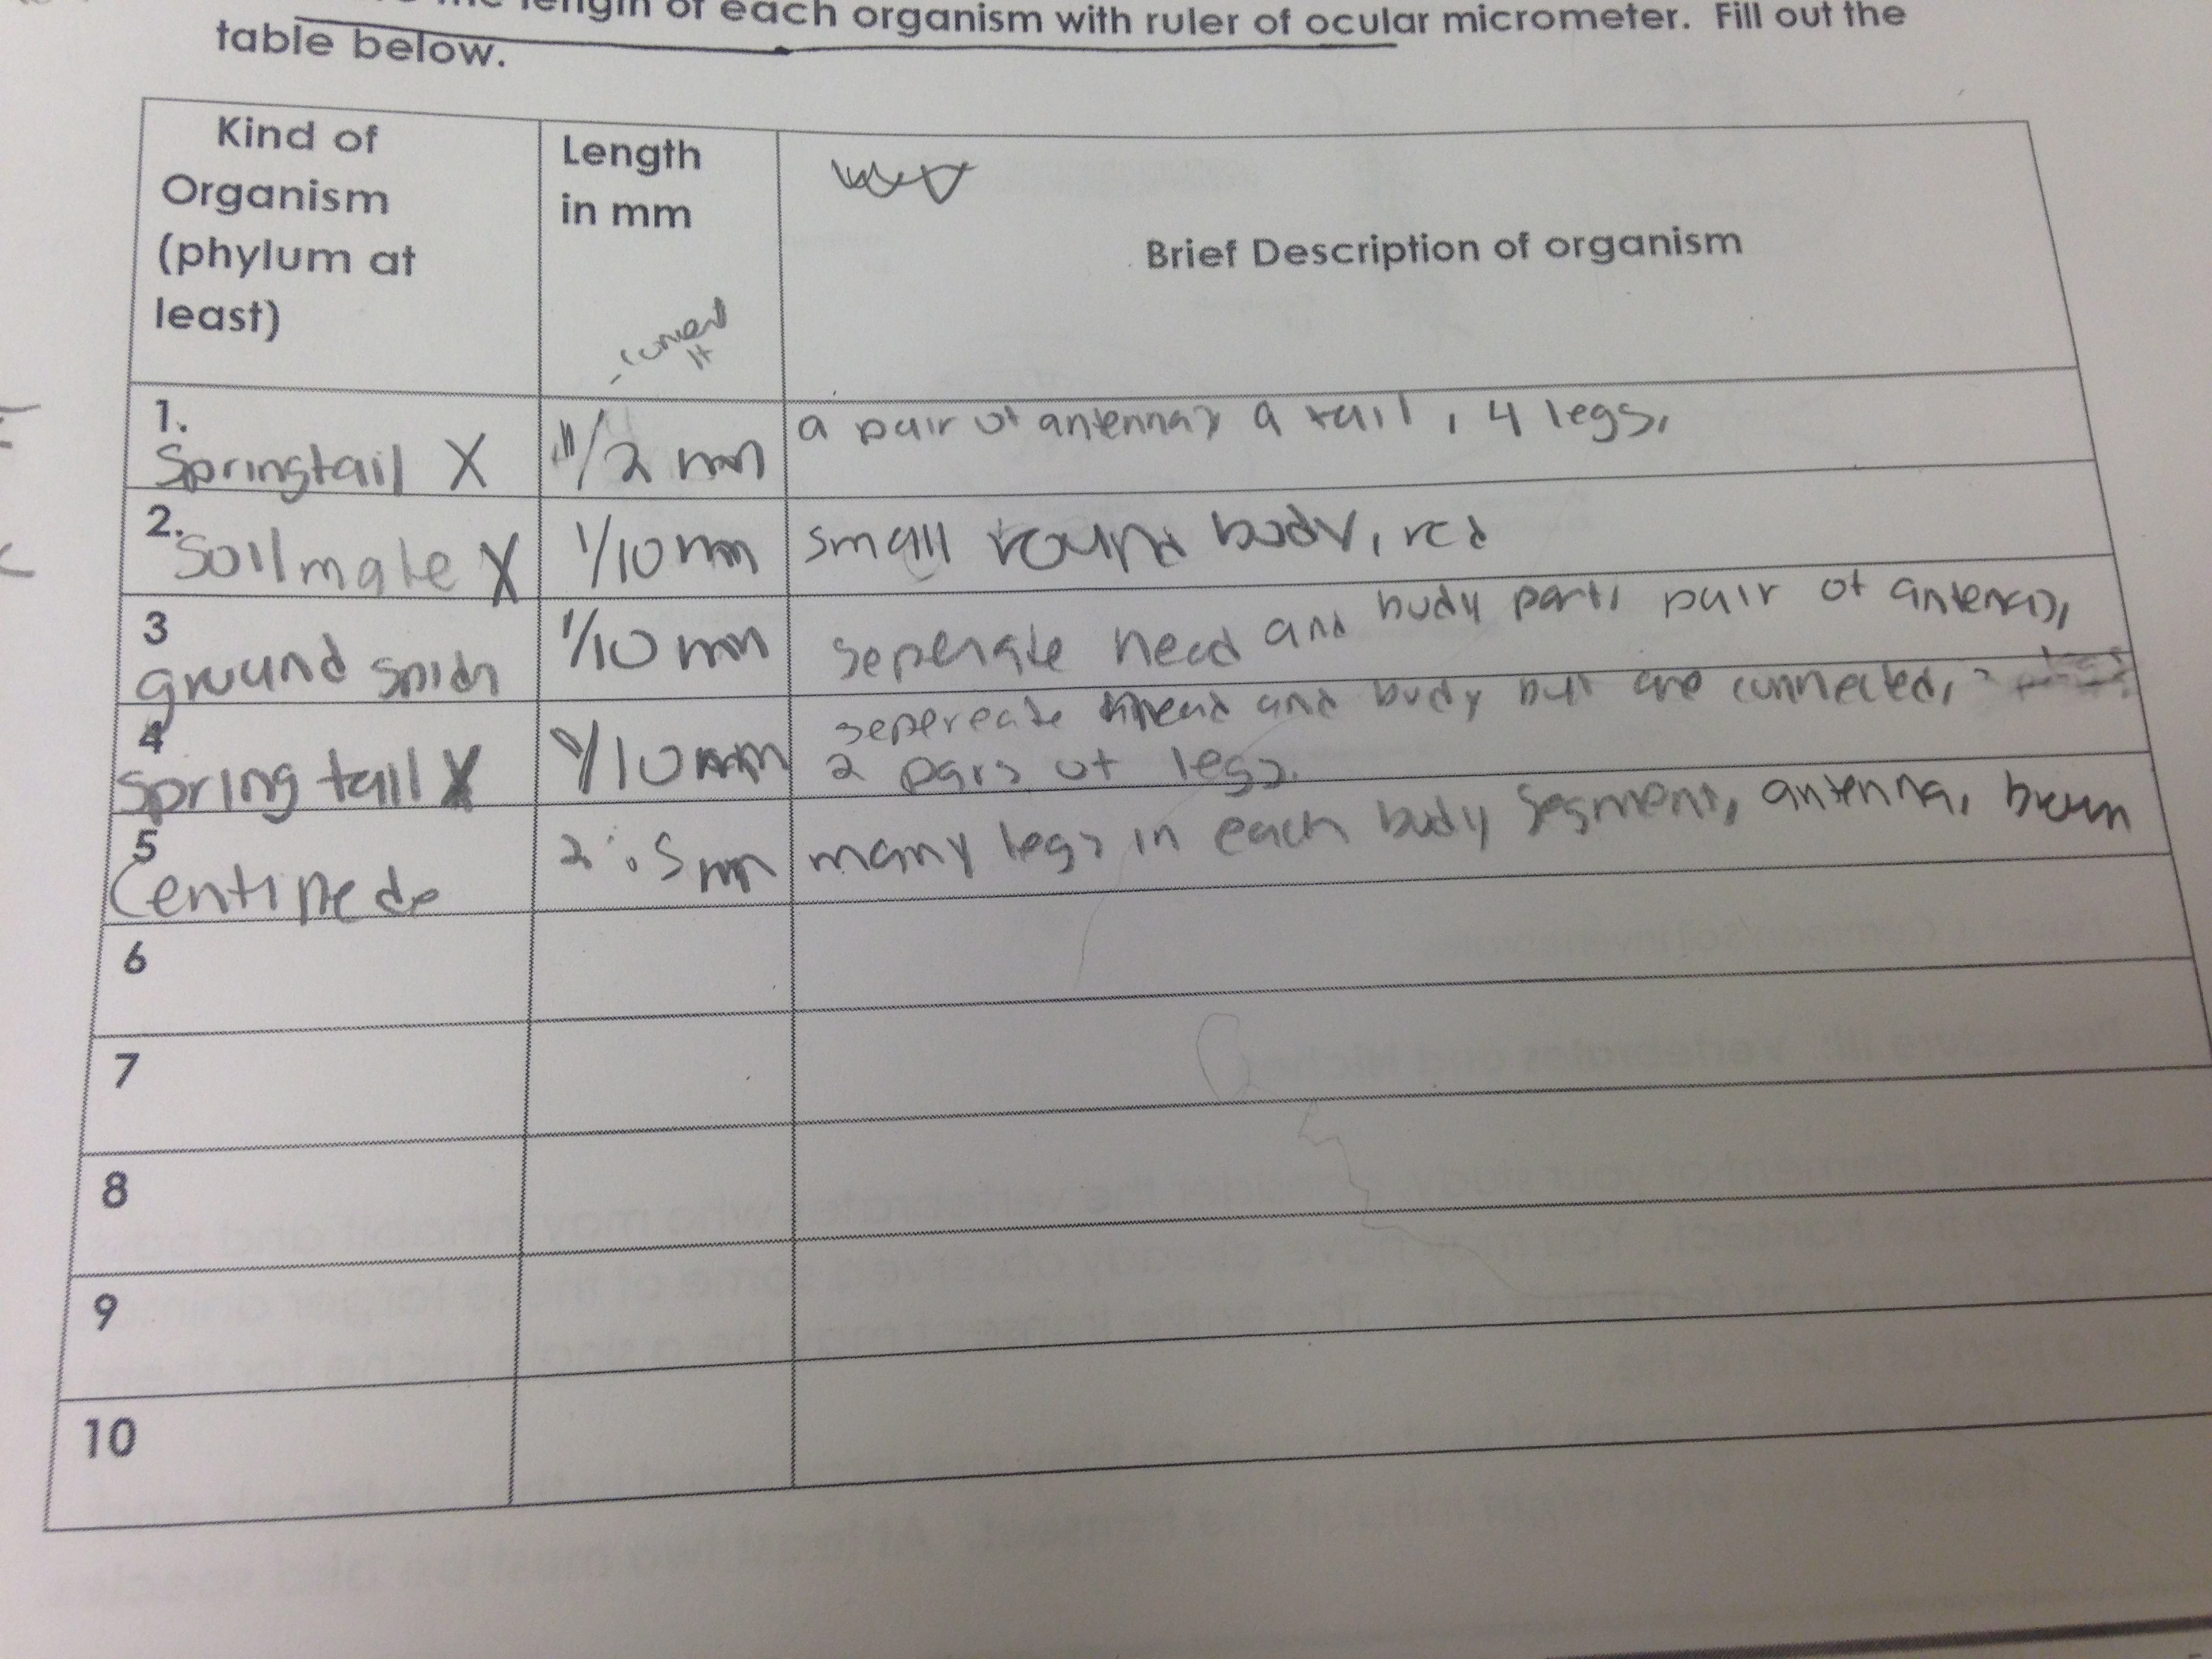 length of each organism with ruler of ocular micrometer. Fill out the
table below.
Kind of
Organism
(phylum at
least)
Length
in mm
- convert
it
Brief Description of organism
1.
Springtail X
1/2 mm
a pair of antenna, a tail, 4 legs,
2.
Soil mate X
1/10 mm
small round body, red
3
ground spidr
1/10 mm
seperate head and body part, pair of antenas,
4
Spring tail X
1/10 mm
sepereate head and body but are connected,
2 pars of legs.
5
Centipede
2.5 mm
many legs in each body segment, antenna, brown
6
7
8
9
10